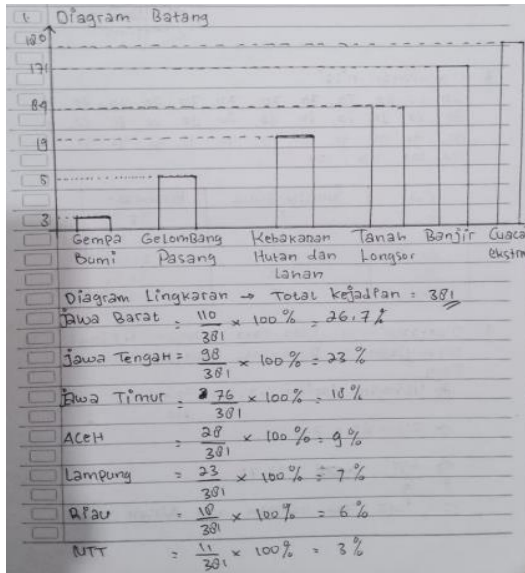 1. Diagram Batang
180
171
84
19
5
3
Gempa Bumi
Gelombang Pasang
Kebakaran Hutan dan Lahan
Tanah Longsor
Banjir
Cuaca Ekstrm
Diagram Lingkaran → Total Kejadian = 381
Jawa Barat = 110/381 × 100% = 26.7%
Jawa Tengah = 98/381 × 100% = 23%
Jawa Timur = 76/381 × 100% = 18%
Aceh = 28/381 × 100% = 9%
Lampung = 23/381 × 100% = 7%
Riau = 18/381 × 100% = 6%
NTT = 11/381 × 100% = 3%